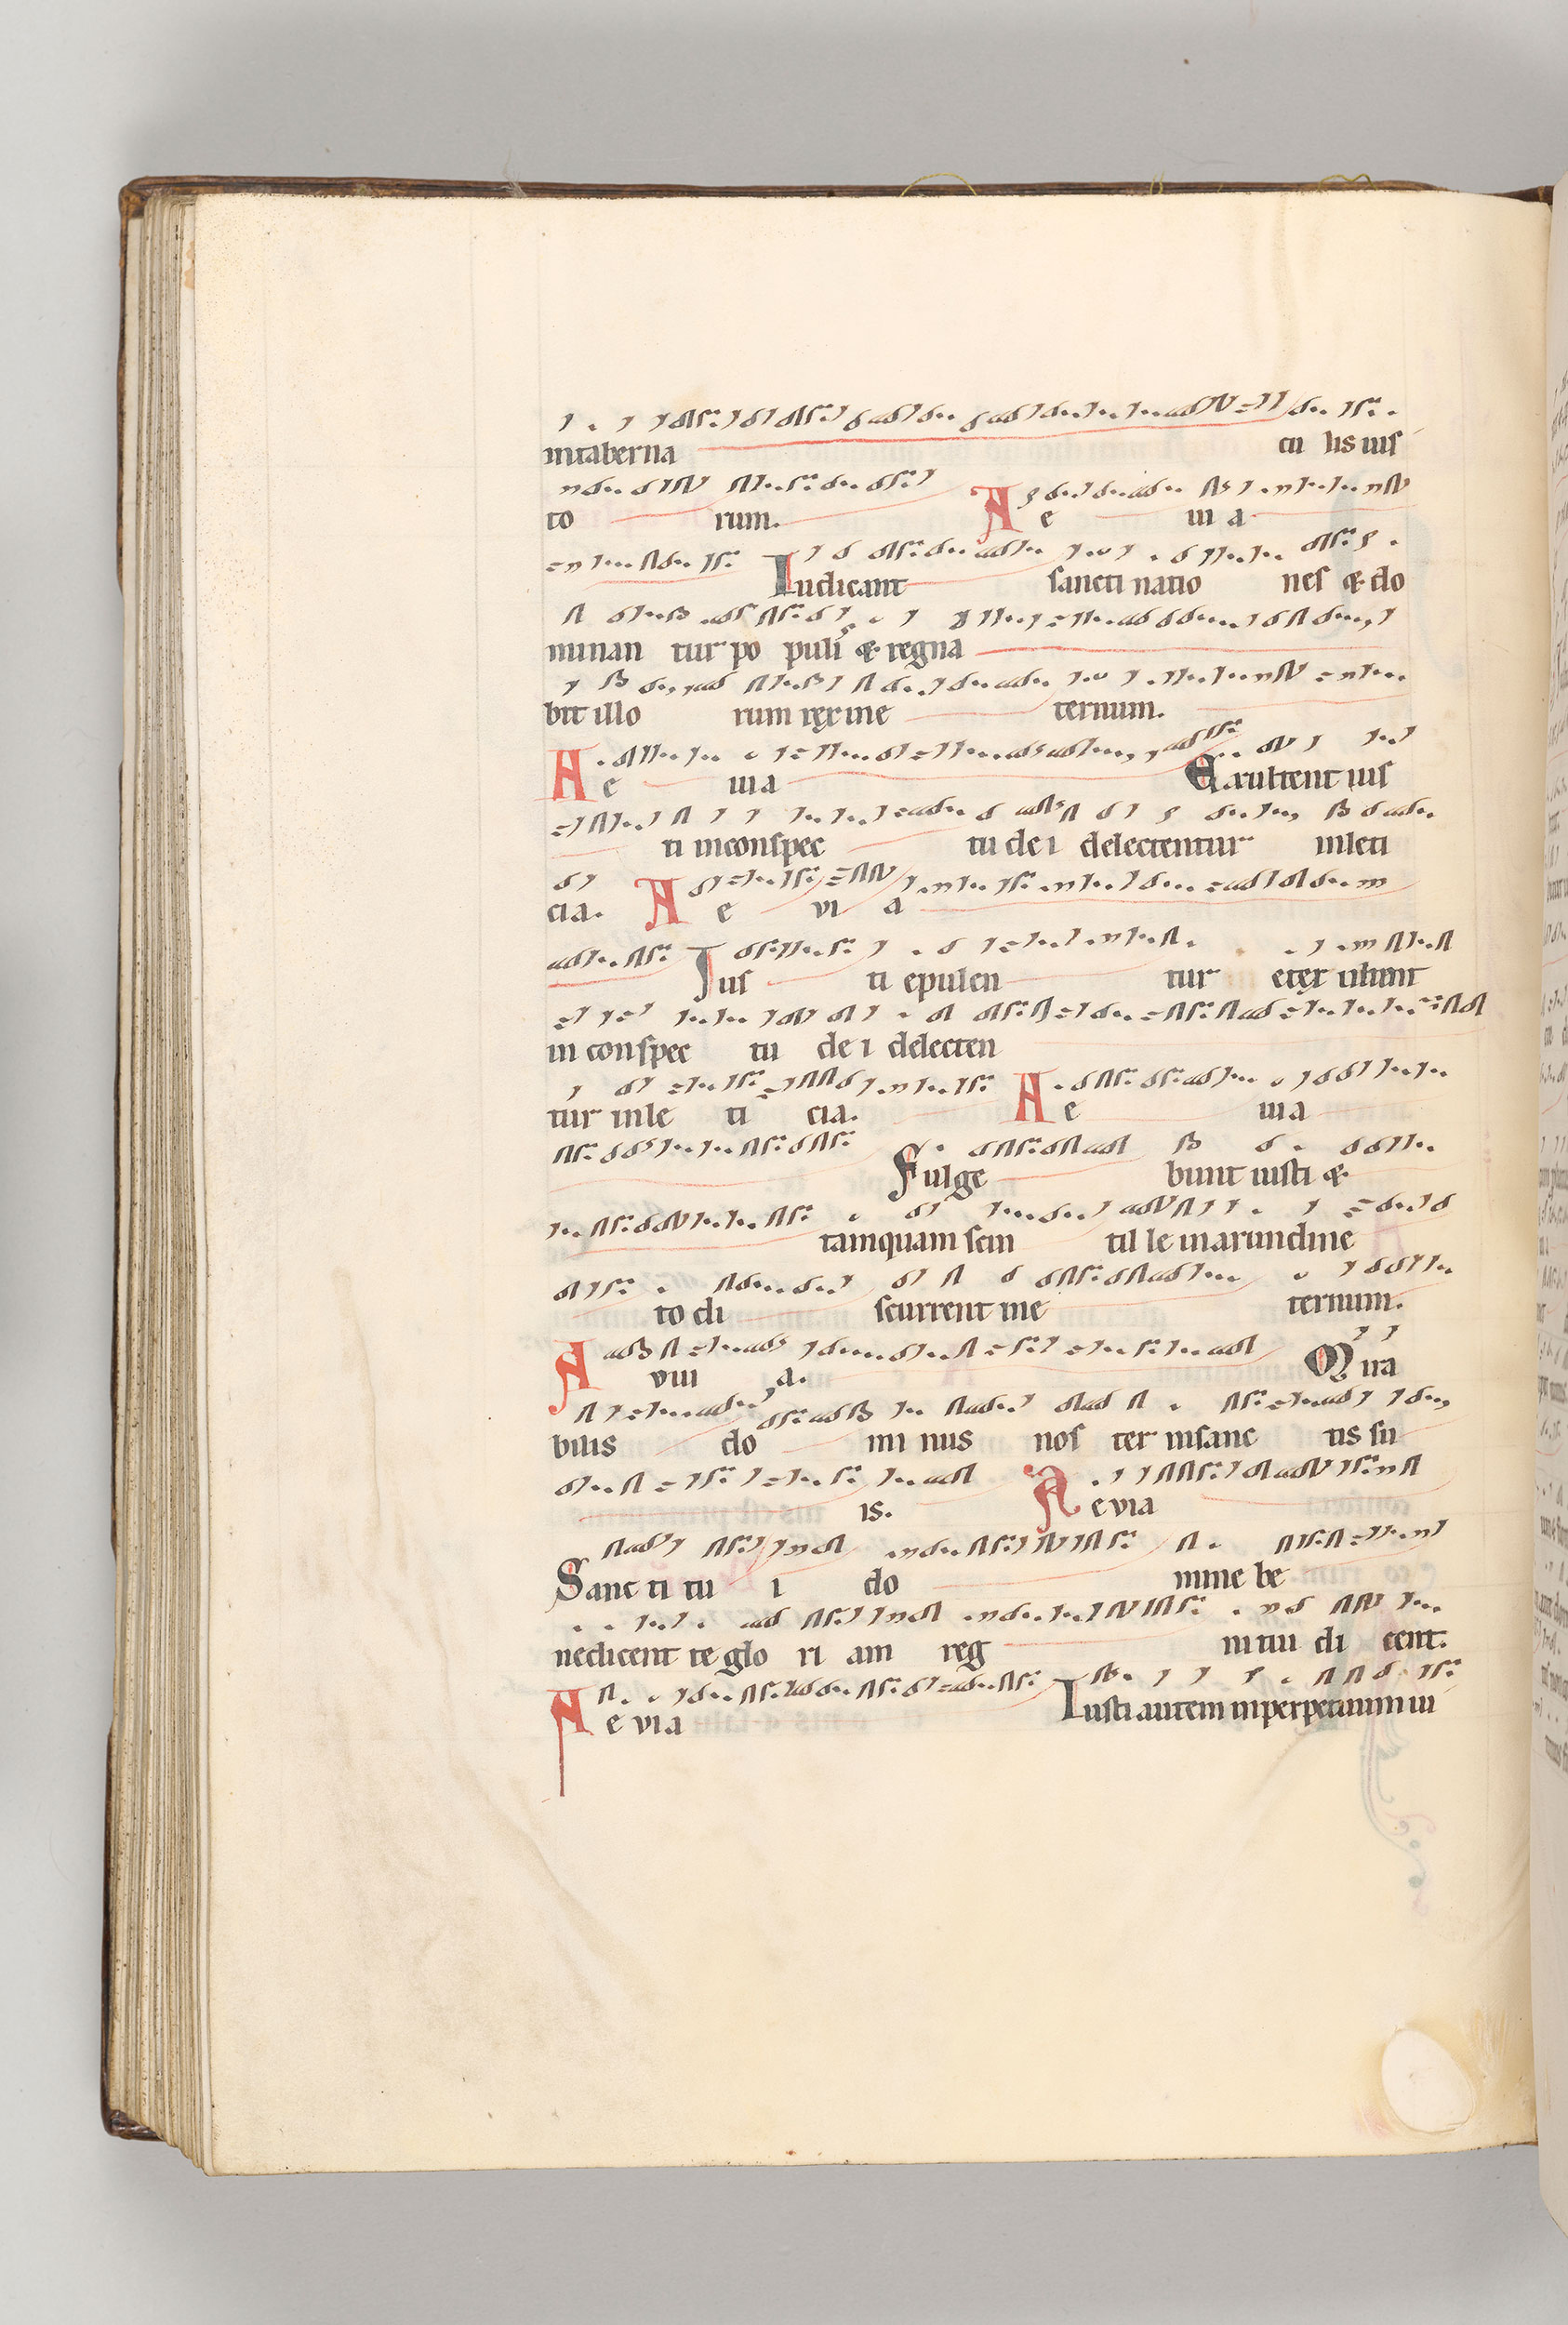 intaberna cu lis iuſ
to rum. A e ui a
Iudicant sancti natio neſ & do
minan tur po puli & regna
bit illo rum ręx ine ternum.
A e uia Exultent iuſ
ti inconſpec tu de i delectentur inleti
cia. A e vi a
Iuſ ti epulen tur etęx ultent
in conſpec tu de i delecten
tur inle ti cia. A e uia
Fulge bunt iuſti &
tamquam ſcin til le inarundine
to di ſcurrent ine ternum.
A viu a. Mira
bilis do mi nus noſ ter inſanc tis su
is. A e via
Sanc ti tu i do mine be
nedicent te glo ri am reg ni tui di cent.
A e via Iuſti autem inperpetuum ui